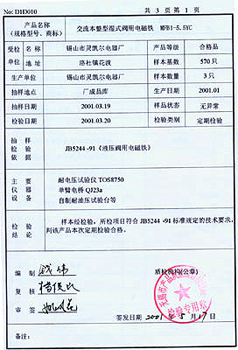 No: D1E0010
共 3 页 第 1 页
产品名称
(规格型号、商标)
交流本整型湿式阀用电磁铁 MFB1-5.5YC
受检单位 锡山市灵凯尔电器厂 产品等级 合格品
名址 洛社镇花渡 样本基数 570只
生产单位 锡山市灵凯尔电器厂 样本数量 3只
抽样地点 厂成品库 生产日期 2001.01
抽样日期 2001.03.19 样品状态 无异常
检验日期 2001.03.20 检验类别 定期检验
抽样
检验
依据
JB5244-91《液压阀用电磁铁》
主要
仪器
设备
耐电压试验仪 TOS8750
单臂电桥 QJ23a
自制耐油压试验台等
样本经检验，所检项目符合 JB5244-91标准规定的技术要求，
判该产品本次定期检验合格。
编制
复核
审签
质检机构(公章)
检验专用章
签发日期 2001年5月17日